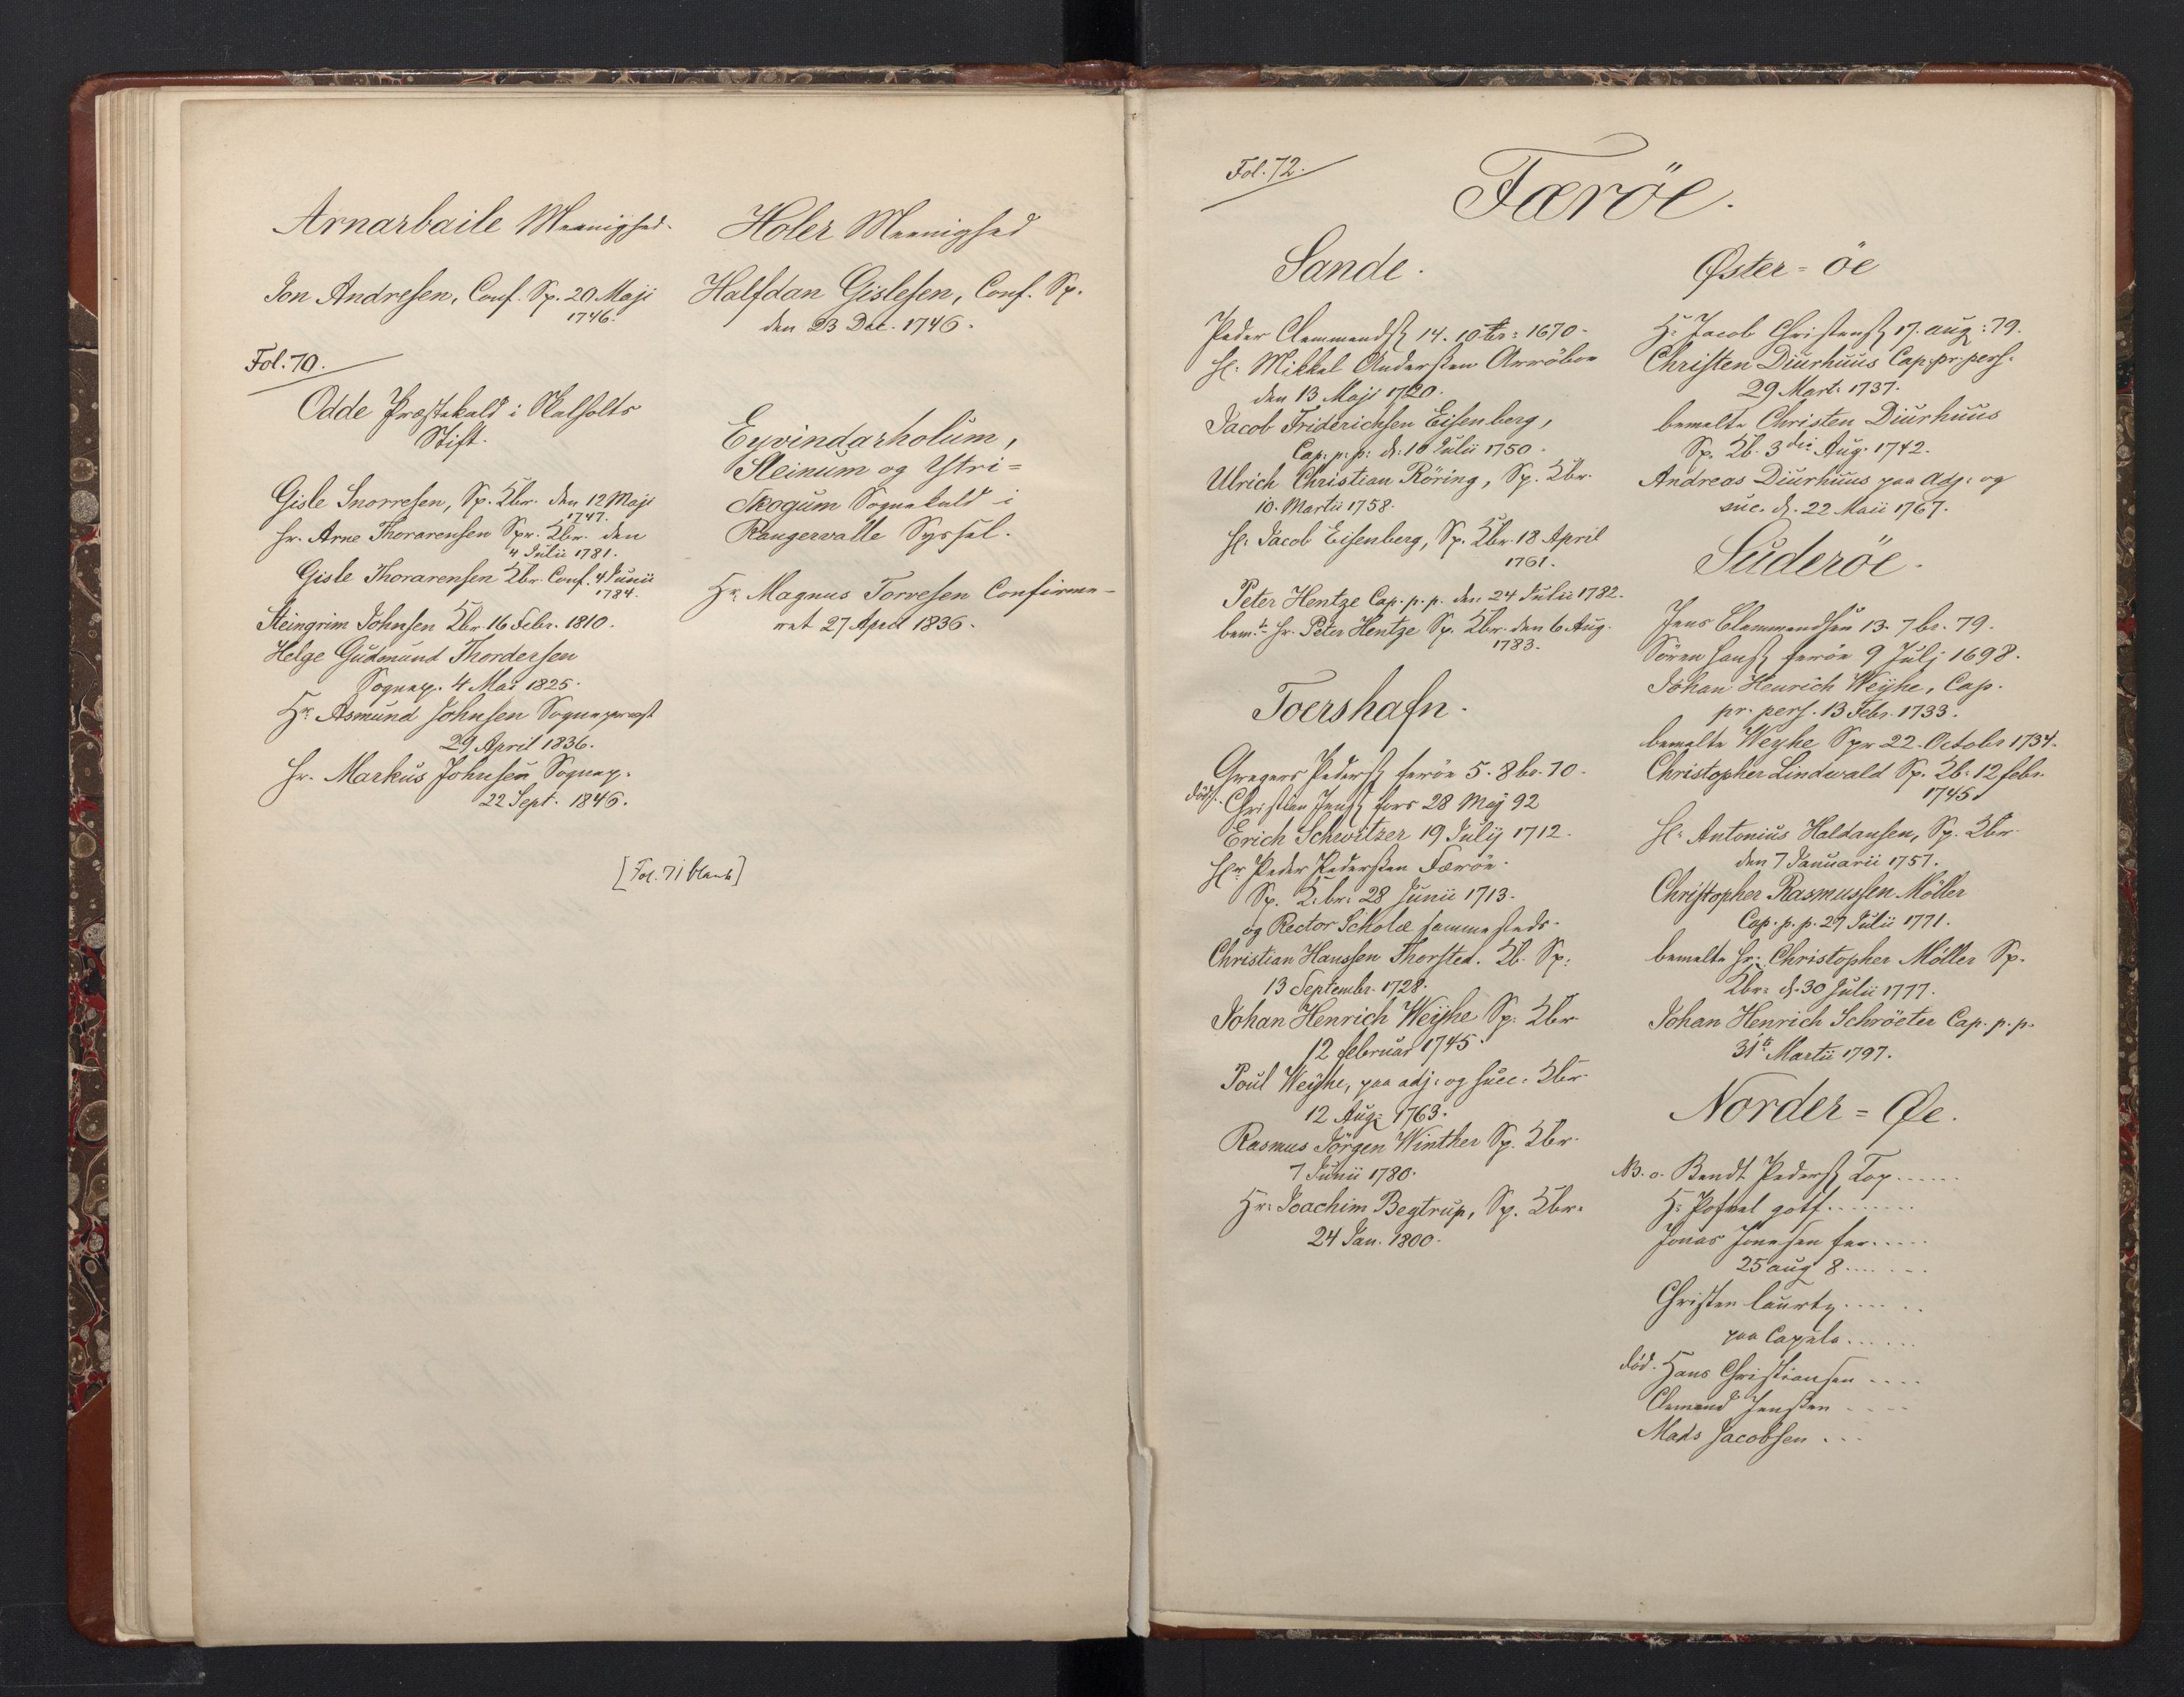 Arnarbaile Meenighed.
Jon Andresen, Conf. Sp. 20. Maji
1746.
Fol. 70.
Odde Præstekald i Skalholts
Stift.
Gisle Snorresen, Sp. Kbr. den 12 Maji
1747.
Hr. Arne Thorarensen Spr. Kbr. den
4 Julii 1781.
Gisle Thorarensen Kbr. Conf. 4 Junii
1784.
Steingrim Johnsen Kbr. 16 Febr. 1810.
Helge Gudmund Thordersen
Sognep. 4 Mai 1825.
Hr. Asmund Johnsen Sognepræst
29 April 1836.
Hr. Markus Johnsen Sognep.
22 Sept. 1846.
Holer Meenighed
Halfdan Gislesen, Conf. Sp.
den 23 Dec. 1746.
Eyvindarholum,
Steinum og Ytri=
skogum Sognekald i
Rangervalle Syssel.
Hr. Magnus Torvesen Confirme-
ret 27 April 1836.
[Fol. 71 blank]
Fol. 72.
Færöe.
Sande.
Peder Clemmends 14. 10br: 1670.
Hr: Mikkel Andersen Arröboe
den 13 Maji 1720.
Jacob Friderichsen Eisenberg,
Cap: p: p: d: 10 Julii 1750.
Ulrich Christian Röring, Sp. Kbr.
10. Martii 1758.
Hr: Jacob Eisenberg, Sp. Kbr. 18 April
1761.
Peter Hentze Cap. p. p. den 24 Julii 1782.
bem.te Hr. Peter Hentze Sp. Kbr. den 6 Aug.
1783.
Toershafn.
Gregers Peders feröe 5. 8br. 70.
död. Christen Jens fors 28 Maj 92
Erich Schwitzer 19 Julij 1712.
Hr. Peder Pedersen Færöe.
Sp. K. br: 28 Junii 1713.
og Rector Scholæ sammesteds.
Christian Hanssen Thorsted. Kb. Sp:
13 Septembr. 1728.
Johan Henrich Weyhe Sp. Kbr.
12 februar 1745.
Poul Weyhe, paa adj: og succ: Kbr.
12 Aug: 1763.
Rasmus Jörgen Winther Sp. Kbr.
7 Junii 1780.
Hr: Joachim Begtrup, Sp. Kbr.
24 Jan. 1800.
Øster=öe
H: Jacob Christens 17. aug: 79.
Christen Diurhuus Cap. pr. pers.
29 Mart: 1737.
bemelte Christen Diurhuus
Sp. Kb. 3die Aug. 1742.
Andreas Diurhuus paa Adj: og
suc. d. 22 Maii 1767.
Suderöe.
Jens Clemmendsen 13. 7br. 79.
Sören Hans feröe 9 Julj 1698.
Johan Henrich Weyhe, Cap.
pr. pers. 13 Febr. 1733.
bemelte Weyhe Spr 22. Octobr 1734.
Christopher Lindwald Sp. Kb: 12 febr.
1745.
Hr. Antonius Haldansen, Sp. Kbr.
den 7 Januarii 1757.
Christopher Rasmussen Möller
Cap. p. p. 27 Julii 1771.
bemelte Hr: Christopher Möller Sp.
Kbr: d. 30 Julii 1777.
Johan Henrich Schröeter Cap. p. p.
31te Martii 1797.
Norder=Øe.
NB. o. Bendt Peders Top......
H: Pofuel gotf........
Jonas Jonesen fer.....
25 aug 8.......
Christen Laurtz......
paa Capela......
död. Hans Christiansen ....
Clemend Jensen ....
Mads Jacobsen ...